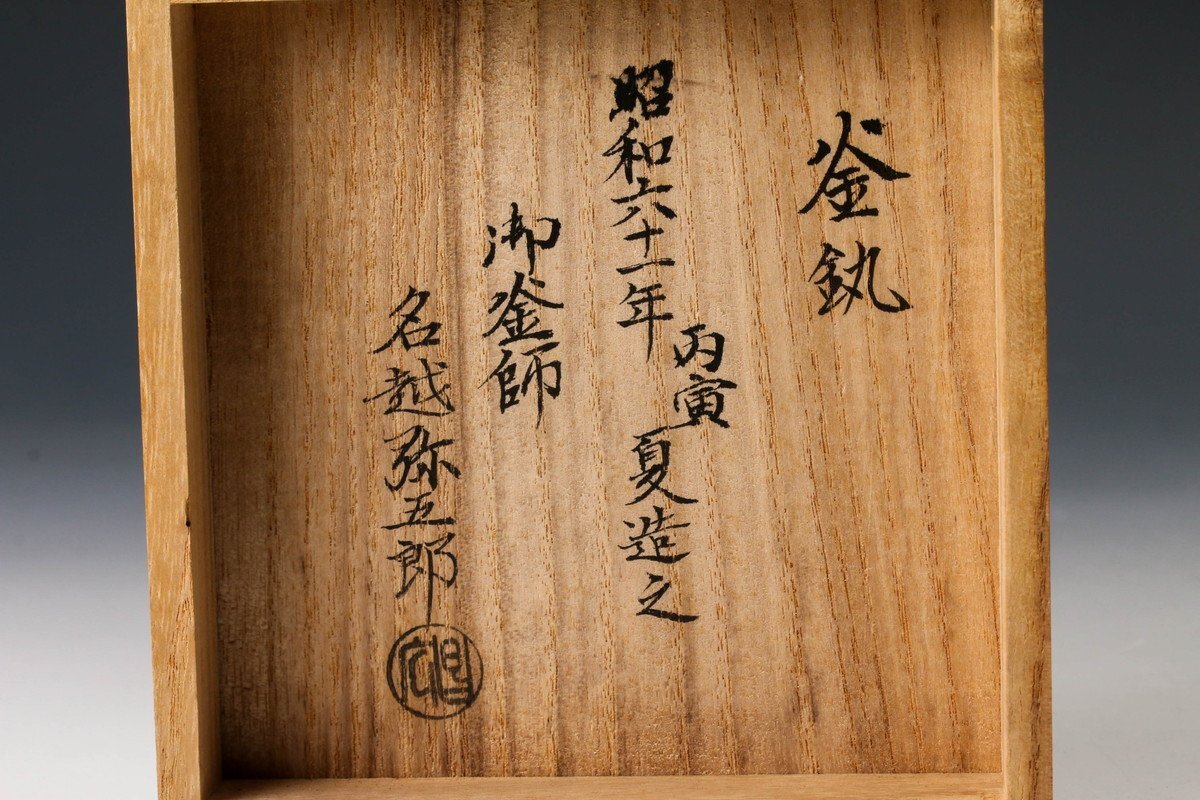 釜釻
昭和六十一年丙寅夏造之
御釜師
名越弥五郎